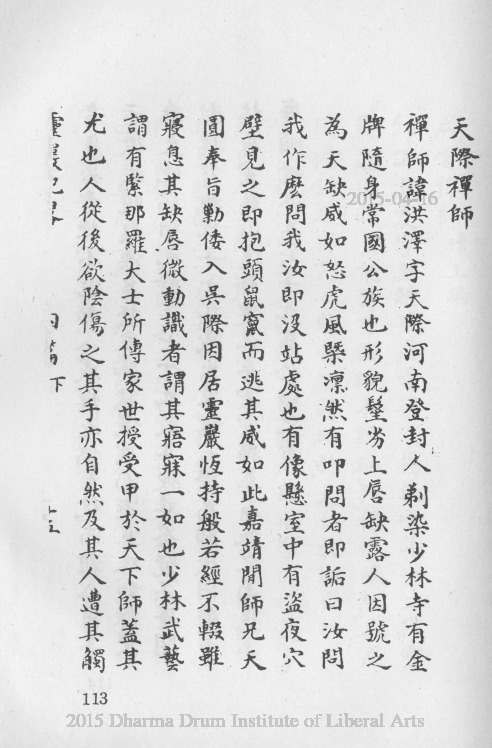 天際禪師
禪師諱洪澤字天際河南登封人剃染少林寺有金
牌隨身常國公族也形貌髼劣上唇缺露人因號之
為天缺威如怒虎風槩凛然有叩問者即詬曰汝問
我作麽問我汝即没站處也有像懸室中有盜夜穴
壁見之即抱頭鼠竄而逃其威如此嘉靖間師兄天
圓奉旨勦倭入吳際因居靈巖恆持般若經不輟雖
寢息其缺唇微動識者謂其寤寐一如也少林武藝
謂有緊那羅大士所傳家世授受甲於天下師蓋其
尤也人從後欲陰傷之其手亦自然及其人遭其觸
靈巖記畧 內篇下 十五
113
2015-04-16
2015 Dharma Drum Institute of Liberal Arts